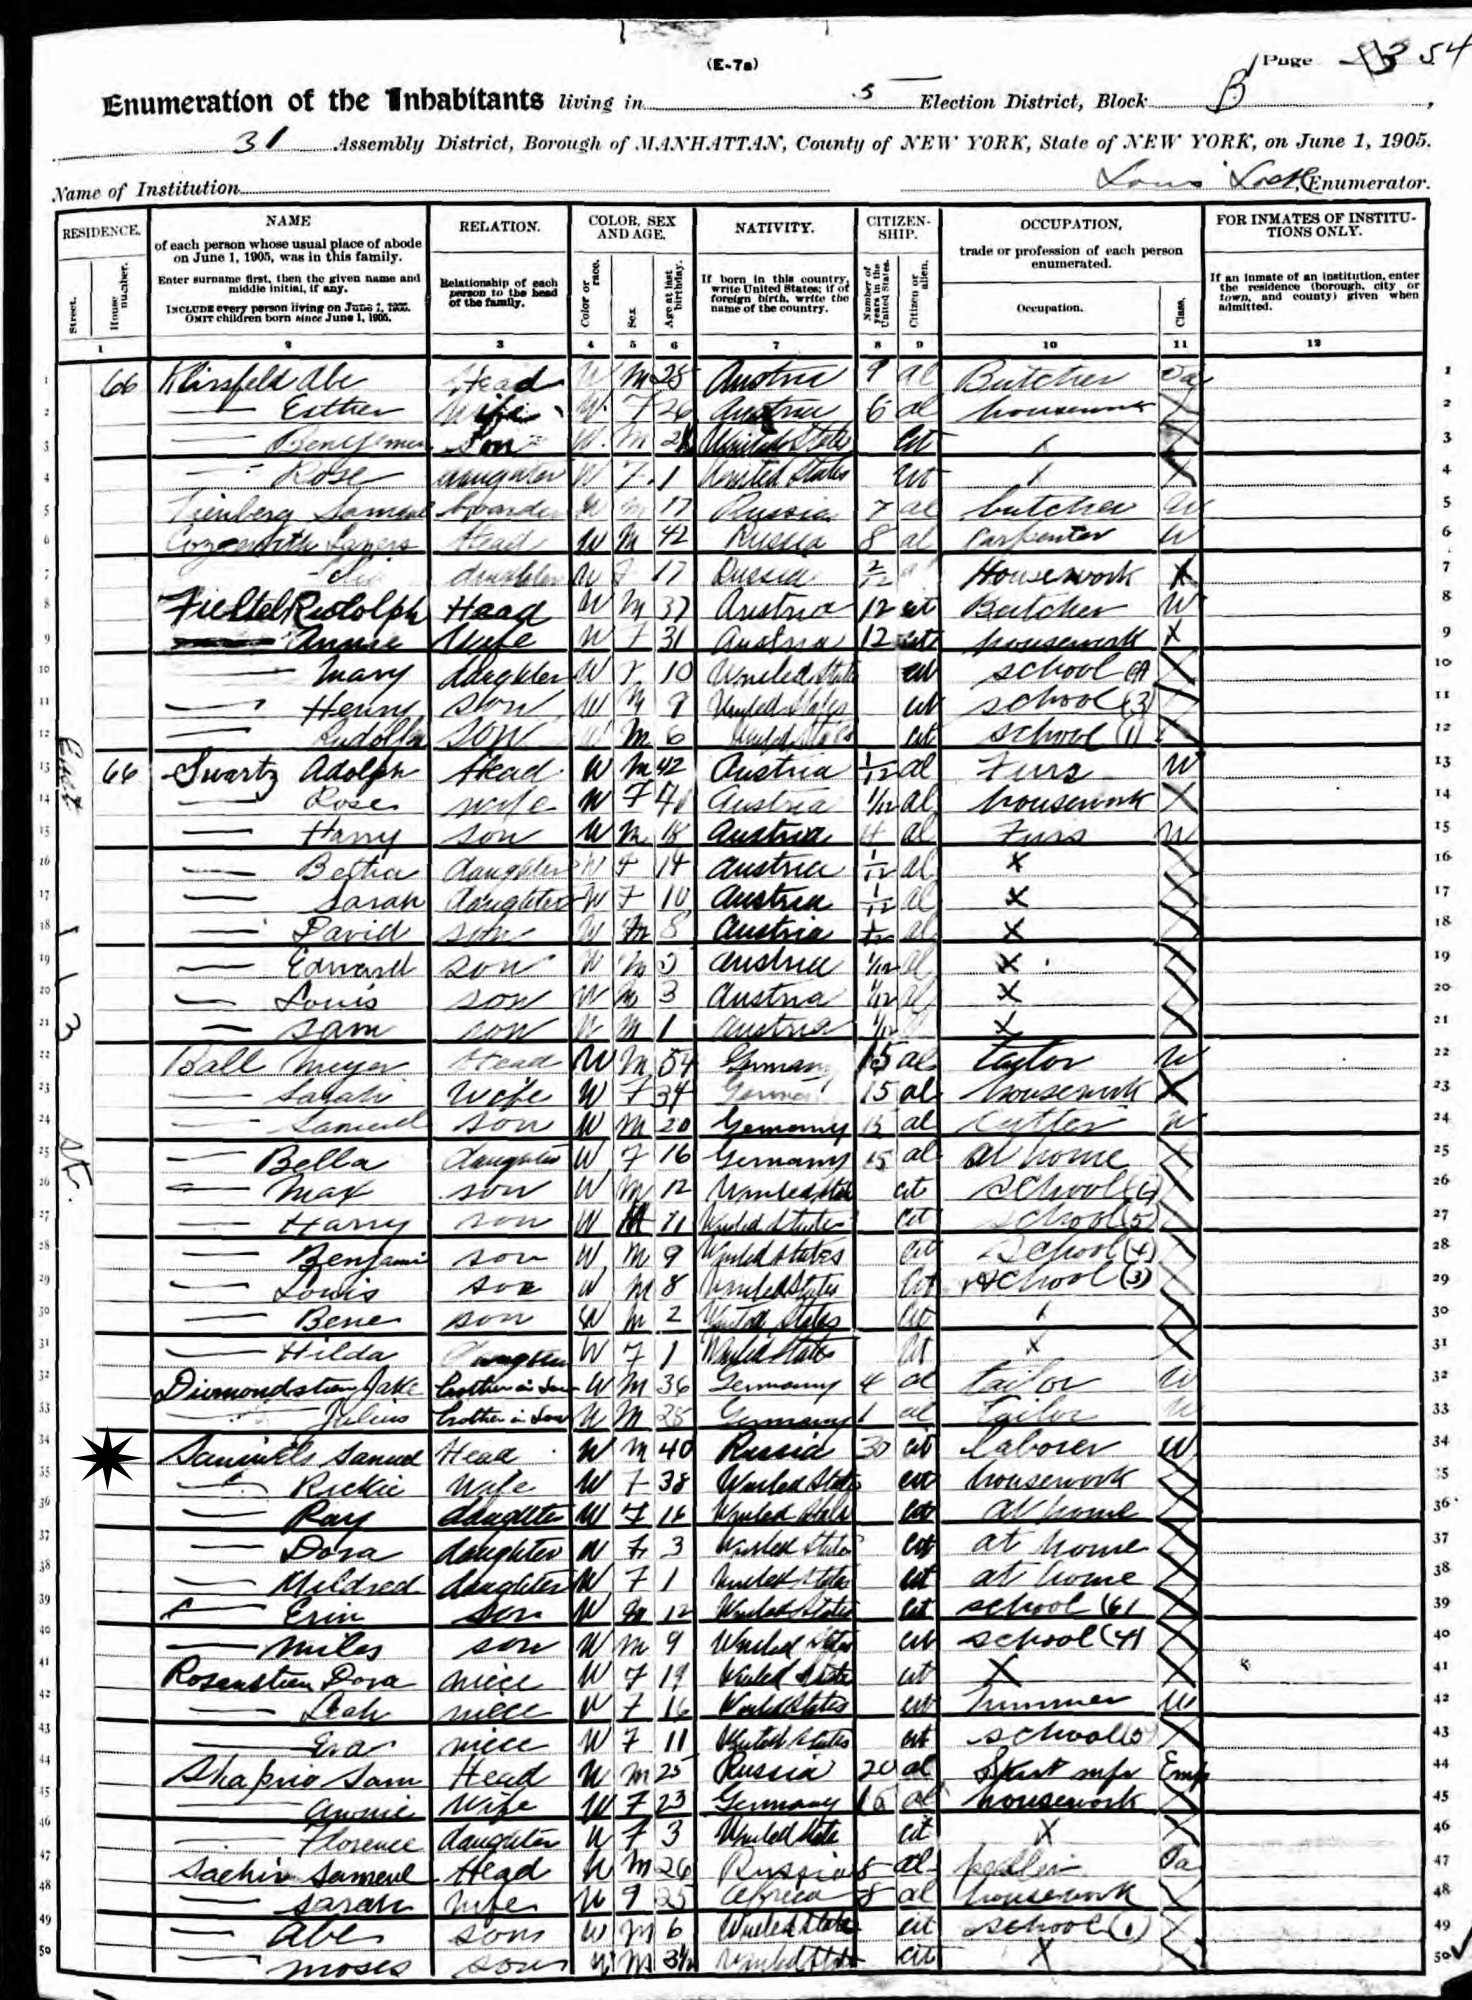 (E-7a)
Page 54
Enumeration of the Inhabitants living in 5 Election District, Block B,
31 Assembly District, Borough of MANHATTAN, County of NEW YORK, State of NEW YORK, on June 1, 1905.
Name of Institution Louis Enumerator.
RESIDENCE. NAME RELATION. COLOR, SEX AND AGE. NATIVITY. CITIZENSHIP. OCCUPATION, FOR INMATES OF INSTITUTIONS ONLY.
Street. House number. of each person whose usual place of abode on June 1, 1905, was in this family. Enter surname first, then the given name and middle initial, if any. INCLUDE every person living on June 1, 1905. OMIT children born since June 1, 1905. Relationship of each person to the head of the family. Color or race. Sex Age at last birthday. If born in this country, write United States; if of foreign birth, write the name of the country. Number of years in the United States. Citizen or alien. trade or profession of each person enumerated. Occupation. Class. If an inmate of an institution, enter the residence (borough, city or town, and county) given when admitted.
1 2 3 4 5 6 7 8 9 10 11 12
East 113 St.
1 66 Abe Head W M 28 Austria 9 al Butcher 1
2 Esther Wife W F 26 Austria 6 al housework X 2
3 Son W M United State cit 3
4 Rose daughter W F 1 United States cit X 4
5 Samuel boarder W M 17 Russia 7 al butcher W 5
6 Head W M 42 Russia 8 al Carpenter W 6
7 W F 17 Russia 2/12 Housework X 7
8 Rudolph Head W M 37 Austria 12 cit Butcher W 8
9 Annie Wife W F 31 Austria 12 cit housework X 9
10 Mary daughter W F 10 United States cit school X 10
11 Henry son W M United States cit school (3) 11
12 Rudolph son M 6 United States cit school (1) 12
13 66 Swartz Adolph Head W M 42 Austria 1/12 al Furs W 13
14 Rose wife W F Austria 1/12 al housework X 14
15 Harry son W M 18 Austria 4 al Furs W 15
16 Bertha daughter W F 14 Austria 1/12 al X 16
17 Sarah daughter W F 10 Austria 1/12 al X 17
18 David son W M 8 Austria 1/12 al X 18
19 Edward son W M Austria 1/12 al X 19
20 Louis son W M 3 Austria 1/12 al X 20
21 Sam son W M 1 Austria 1/12 X 21
22 Ball Meyer Head W M 54 Germany 15 al taylor W 22
23 Sarah Wife W F 34 15 al housework X 23
24 Samuel son W M 20 Germany 15 al cutter W 24
25 Bella daughter W F 16 Germany 15 al at home X 25
26 Max son W M 12 United State cit school (6) 26
27 Harry son W M 11 United States cit school (5) 27
28 Benjamin son W M 9 United States cit School (4) 28
29 Louis son W M 8 United States cit school (3) 29
30 Bene son W M 2 United States cit 30
31 Hilda W F 1 United States X 31
32 Jake brother in law W M 36 Germany 4 al tailor W 32
33 Julius brother in law W M 28 Germany 1 al tailor W 33
34 Samuels Samuel Head W M 40 Russia 30 cit laborer W 34
35 Rickie Wife W F 38 United States cit housework 35
36 Ray daughter W F 16 United States cit at home 36
37 Dora daughter W F 3 United States cit at home 37
38 Mildred daughter W F 1 United States cit at home 38
39 Erin son W M 12 United States cit school (6) 39
40 Miles son W M 9 United States cit school (4) 40
41 Dora niece W F 19 United State cit X X 41
42 Leah niece W F 16 United States cit W 42
43 Eva niece W F 11 United States cit school (5) 43
44 Shapiro Sam Head W M 25 Russia 20 al Skirt mfr Emp 44
45 Annie Wife W F 23 Germany al housework 45
46 Florence daughter W F 3 United State cit X 46
47 Samuel Head W M 26 Russia 8 al pedler 47
48 Sarah wife W F 25 Africa 8 al housework 48
49 Abe son W M 6 United State cit school (1) 49
50 Moses son W M 3½ United States cit X 50